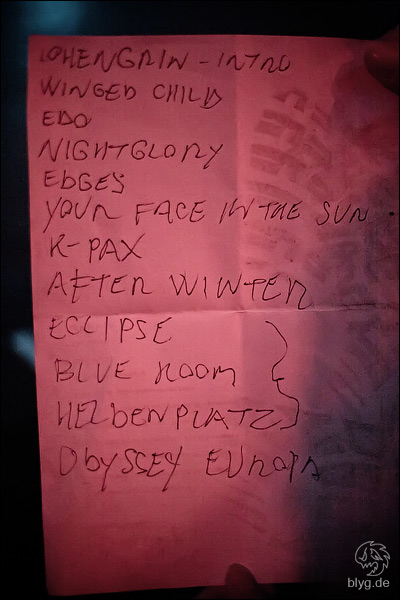 LOHENGRIN - INTRO
WINGED CHILD
EDO
NIGHTGLORY
EDGES
YOUR FACE IN THE SUN
K-PAX
AFTER WINTER
ECLIPSE
BLUE ROOM
HELDENPLATZ
ODYSSEY EUROPA
blyg.de